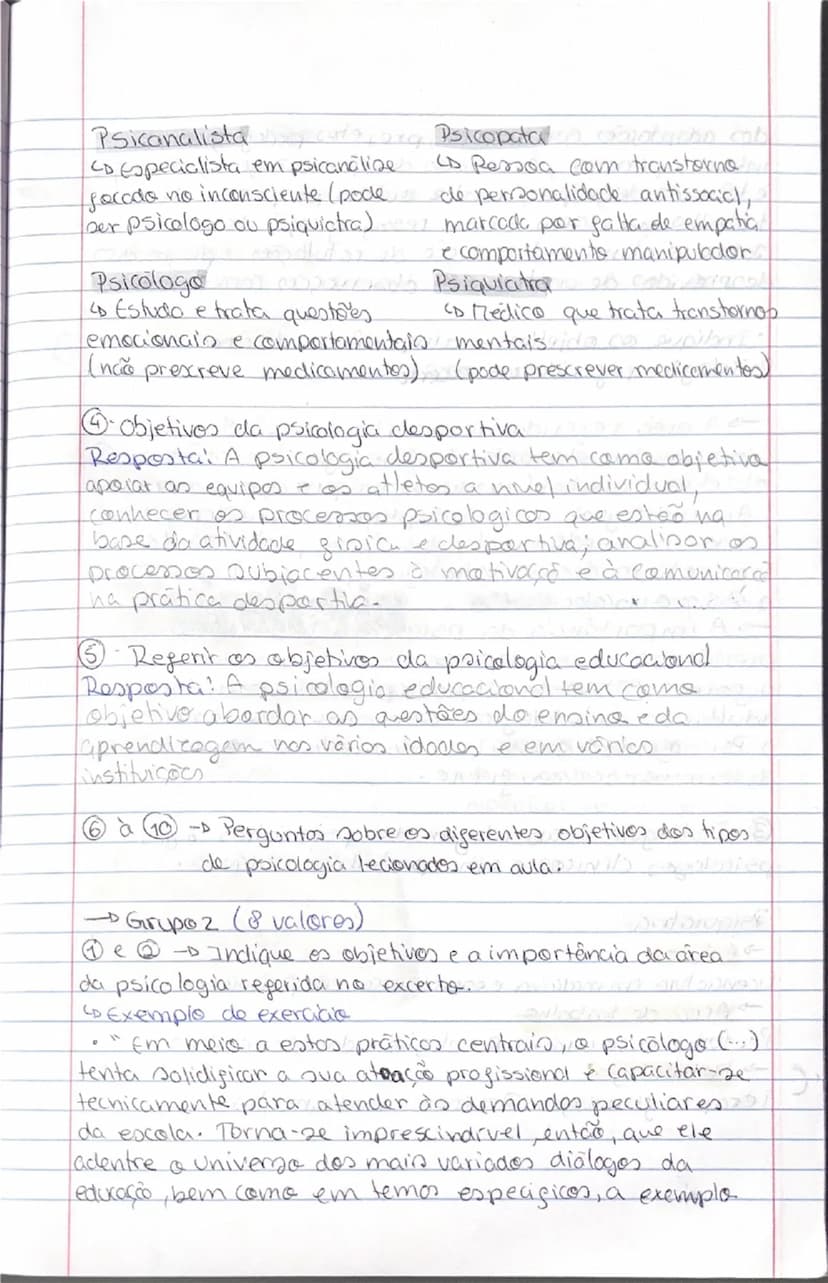 Psicanalista
↳ Especialista em psicanálise
focado no inconsciente (pode
ser psicologo ou psiquiatra)
Psicopata
↳ Pessoa com transtorno
de personalidade antissocial,
marcada por falta de empatia
e comportamento manipulador
Psicólogo
↳ Estuda e trata questões
emocionais e comportamentais
(não prexcreve medicamentos)
Psiquiatra
↳ Médico que trata transtornos
mentais
(pode prescrever medicamentos)
④- Objetivos da psicologia desportiva
Resposta: A psicologia desportiva tem como objetivo
apoiar as equipas e os atletas a nivel individual,
conhecer os processos psicologicos que estão na
base da atividade fisica e desportiva; analisar os
processos subjacentes à motivação e à comunicação
na prática desportiva.
⑤- Referir os objetivos da psicologia educacional
Resposta: A psicologia educacional tem como
objetivo abordar as questões do ensino e da
aprendizagem nas várias idades e em várias
instituições
⑥ à ⑩ → Perguntas sobre os diferentes objetivos dos tipos
de psicologia lecionados em aula.
→ Grupo 2 (8 valores)
① e ② → Indique os objetivos e a importância da área
da psicologia referida no excerto.
↳ Exemplo de exercício
• "Em meio a estas práticas centrais, o psicólogo (...)
tenta solidificar a sua atuação profissional e capacitar-se
tecnicamente para atender às demandas peculiares
da escola. Torna-se imprescindível, então, que ele
adentre o universo dos mais variados diálogos da
educação, bem como em temas específicos, a exemplo